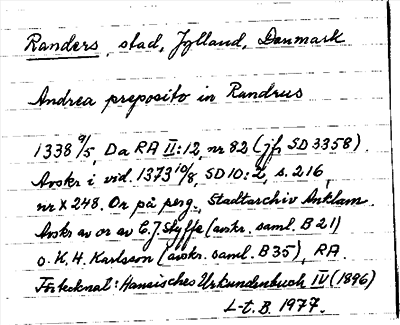 Randers, stad, Jylland, Danmark
Andrea preposito in Randrus
1338 9/5, Da RA II:12, nr 82 (jfr SD 3358).
Avskr i vid. 1373 10/8, SD 10:2, s. 216,
nr X 248. Or på perg., Stadtarchiv Anklam.
Avskr av or av C.G. Styffe (avskr. saml. B 21)
o. K.H. Karlsson (avskr. saml. B 35), RA.
Förtecknat: Hansisches Urkundenbuch IV (1896)
L-t. B. 1977.